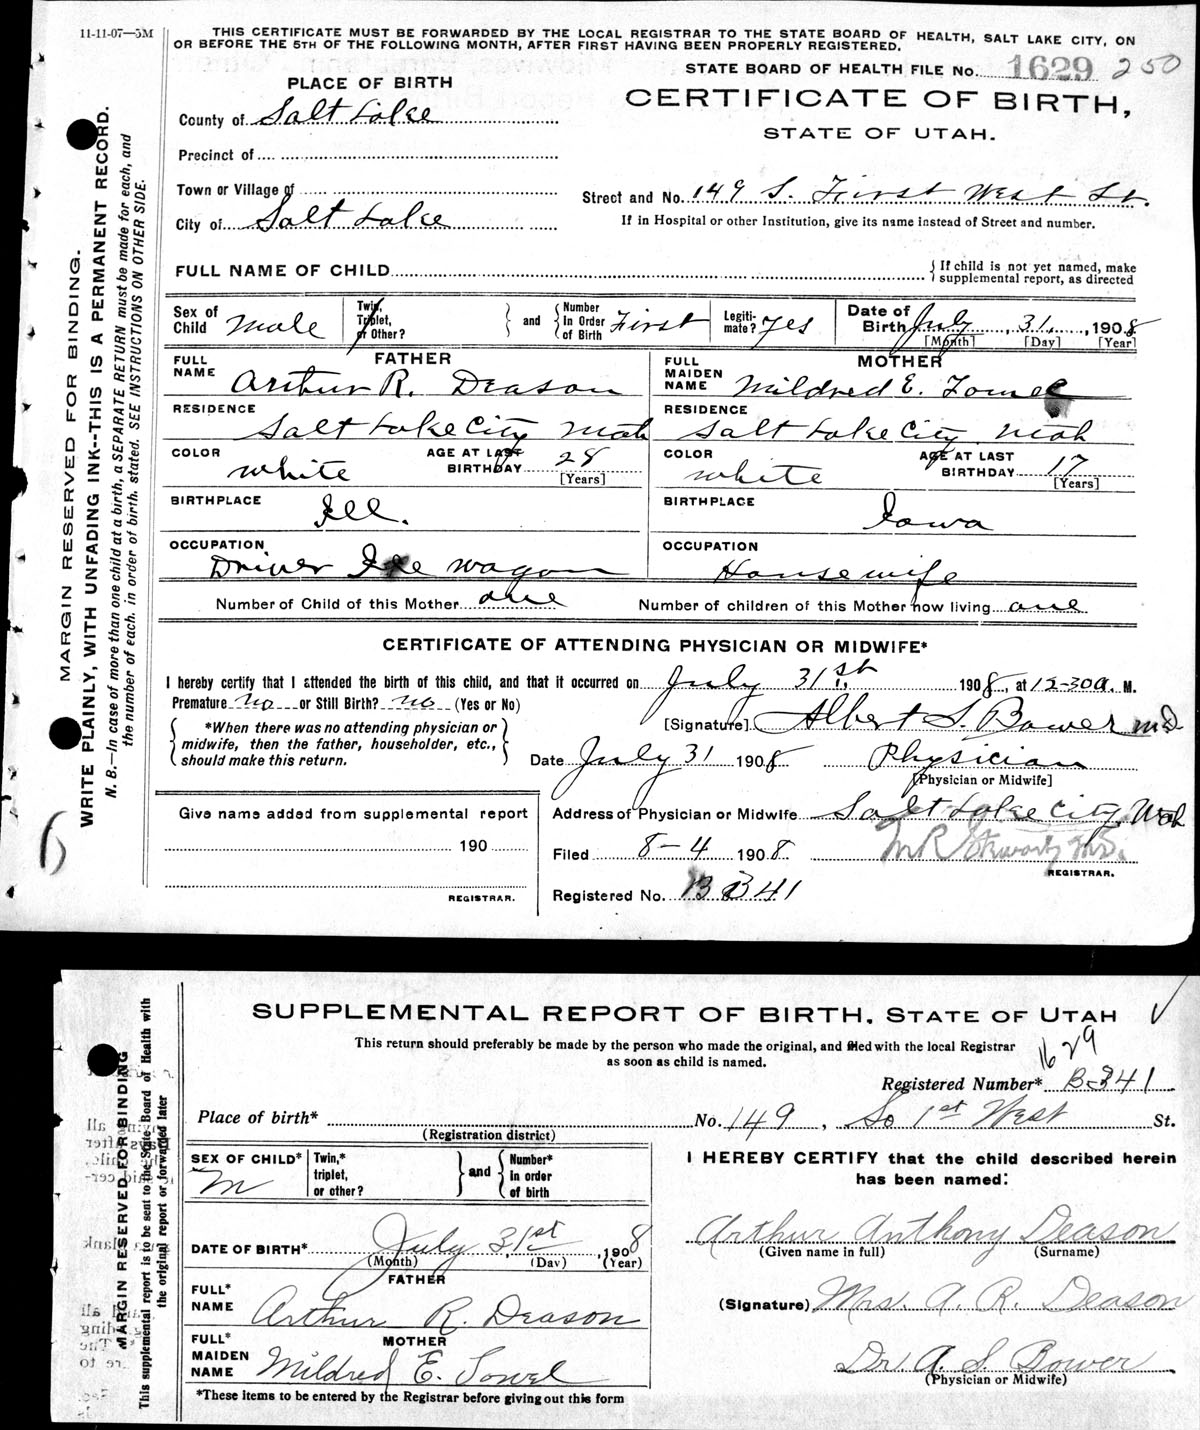 11-11-07—5M
THIS CERTIFICATE MUST BE FORWARDED BY THE LOCAL REGISTRAR TO THE STATE BOARD OF HEALTH, SALT LAKE CITY, ON
OR BEFORE THE 5TH OF THE FOLLOWING MONTH, AFTER FIRST HAVING BEEN PROPERLY REGISTERED.
STATE BOARD OF HEALTH FILE No. 1629 250
PLACE OF BIRTH
CERTIFICATE OF BIRTH,
STATE OF UTAH.
County of Salt Lake
Precinct of
Town or Village of
Street and No. 149 S. First West St.
City of Salt Lake
If in Hospital or other Institution, give its name instead of Street and number.
FULL NAME OF CHILD
{ If child is not yet named, make
supplemental report, as directed
MARGIN RESERVED FOR BINDING.
WRITE PLAINLY, WITH UNFADING INK--THIS IS A PERMANENT RECORD.
N. B.—In case of more than one child at a birth, a SEPARATE RETURN must be made for each, and
the number of each. in order of birth. stated. SEE INSTRUCTIONS ON OTHER SIDE.
Sex of Child Male
Twin, Triplet, or Other?
} and { Number In Order of Birth First
Legiti-mate? Yes
Date of Birth July, 31, 1908
[Month] [Day] [Year]
FATHER
FULL NAME Arthur R. Deason
MOTHER
FULL MAIDEN NAME Mildred E.
RESIDENCE
Salt Lake City Utah
RESIDENCE
Salt Lake City Utah
COLOR white
AGE AT LAST BIRTHDAY 28 [Years]
COLOR white
AGE AT LAST BIRTHDAY 17 [Years]
BIRTHPLACE
Ill.
BIRTHPLACE
Iowa
OCCUPATION
Driver Ice wagon
OCCUPATION
Housewife
Number of Child of this Mother one
Number of children of this Mother now living one
CERTIFICATE OF ATTENDING PHYSICIAN OR MIDWIFE*
I hereby certify that I attended the birth of this child, and that it occurred on July 31st, 1908, at 12-30a. M.
Premature no or Still Birth? no (Yes or No)
{ *When there was no attending physician or
midwife, then the father, householder, etc.,
should make this return. }
[Signature] Albert S. Bower M.D.
Date July 31 1908 Physician
[Physician or Midwife]
Give name added from supplemental report
190
REGISTRAR.
Address of Physician or Midwife Salt Lake City, Utah
Filed 8-4 1908 M R Stewart M.D.
REGISTRAR.
Registered No. B B41
SUPPLEMENTAL REPORT OF BIRTH, STATE OF UTAH
This return should preferably be made by the person who made the original, and filed with the local Registrar
as soon as child is named.
1629
Registered Number* B341
MARGIN RESERVED FOR BINDING
This supplemental report is to be sent to the State Board of Health with
the original report or forwarded later
Place of birth* No. 149, So 1st West St.
(Registration district)
SEX OF CHILD* M
Twin,* triplet, or other?
} and { Number* in order of birth
I HEREBY CERTIFY that the child described herein
has been named:
Arthur Anthony Deason
(Given name in full) (Surname)
DATE OF BIRTH* July 31st, 1908
(Month) (Day) (Year)
FATHER
FULL* NAME Arthur R. Deason
(Signature) Mrs. A. R. Deason
MOTHER
FULL* MAIDEN NAME Mildred E.
Dr. A. S. Bower
(Physician or Midwife)
*These items to be entered by the Registrar before giving out this form